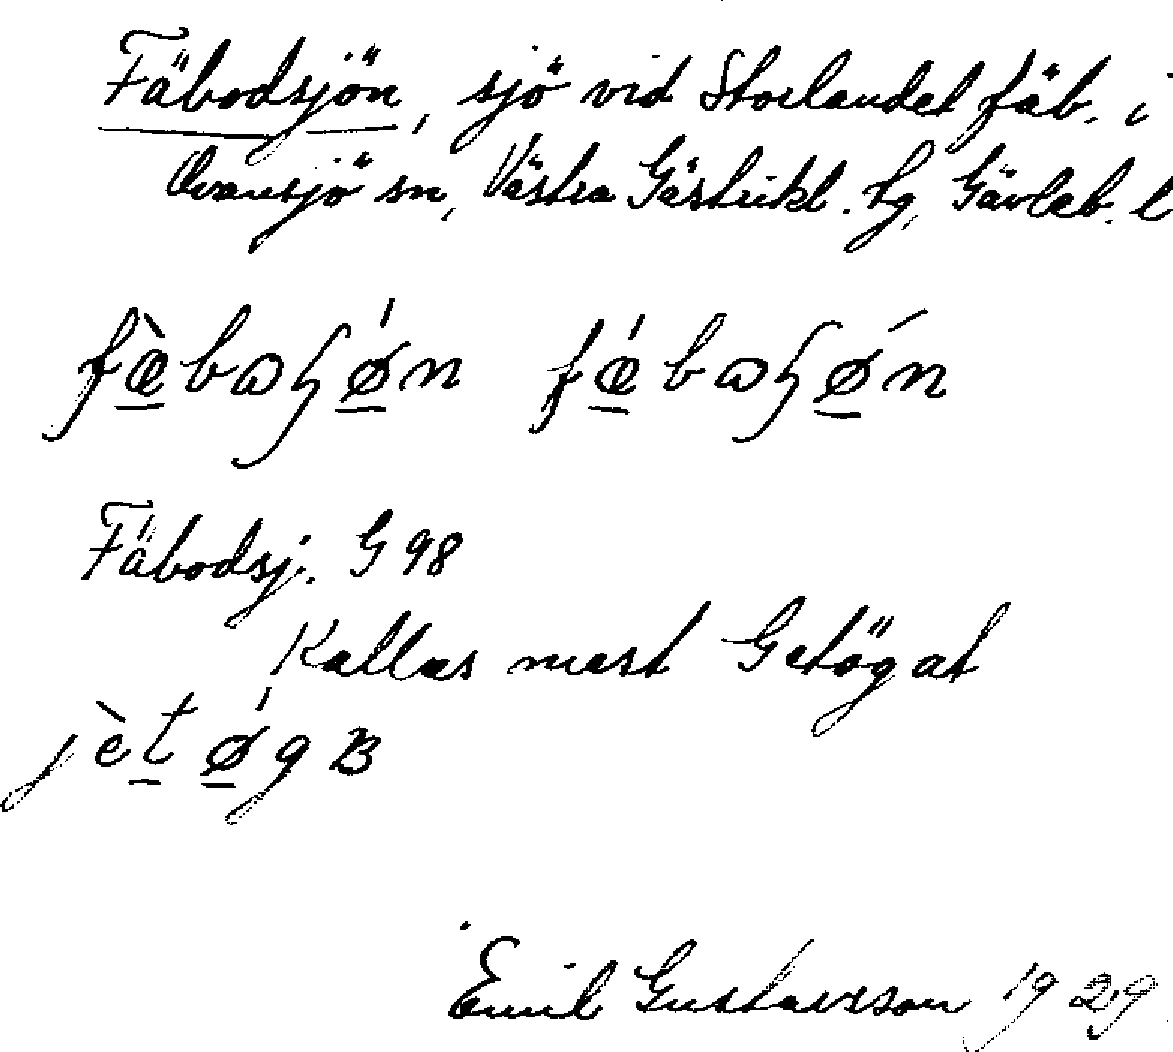 Fäbodsjön, sjö vid Storlandet fäb. i
Ovansjö sn, Västra Gästrikl. tg, Gävleb. l
Fäbodsj. G 98
Kallas mest Getögat
Emil Gustavsson 1929